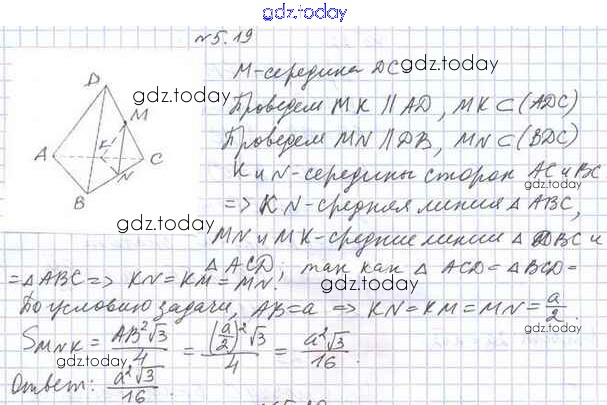 gdz.today
№5.19
M-середина DC gdz.today
gdz.today
Проведем MK || AD, MK ⊂ (ADC)
Проведем MN || DB, MN ⊂ (BDC)
gdz.today
D
M
A
K
C
N
B
K и N-середины сторон AC и BC
gdz.today
=> KN-средняя линия △ ABC,
gdz.today
MN и MK-средние линии △ DBC и
△ ACD; так как △ ACD = △ BCD =
gdz.today
= △ ABC => KN = KM = MN.
По условию задачи, AB = a => KN = KM = MN = a/2.
gdz.today
S_MNK = AB²√3/4 = (a/2)²√3/4 = a²√3/16.
gdz.today
gdz.today
Ответ: a²√3/16.